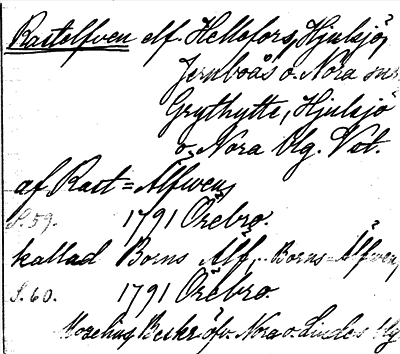 Rastelfven elf. Hellefors, Hjulsjö,
Jernboås o. Nora snr
Grythytte, Hjulsjö
o. Nora blg. Vst.
af Rast=Älfven,
S. 59. 1791 Örebro.
kallad Borns Älf, Borns=Älfven,
S. 60. 1791 Örebro.
Morelius Beskr. öfv. Nora o. Lindes blg